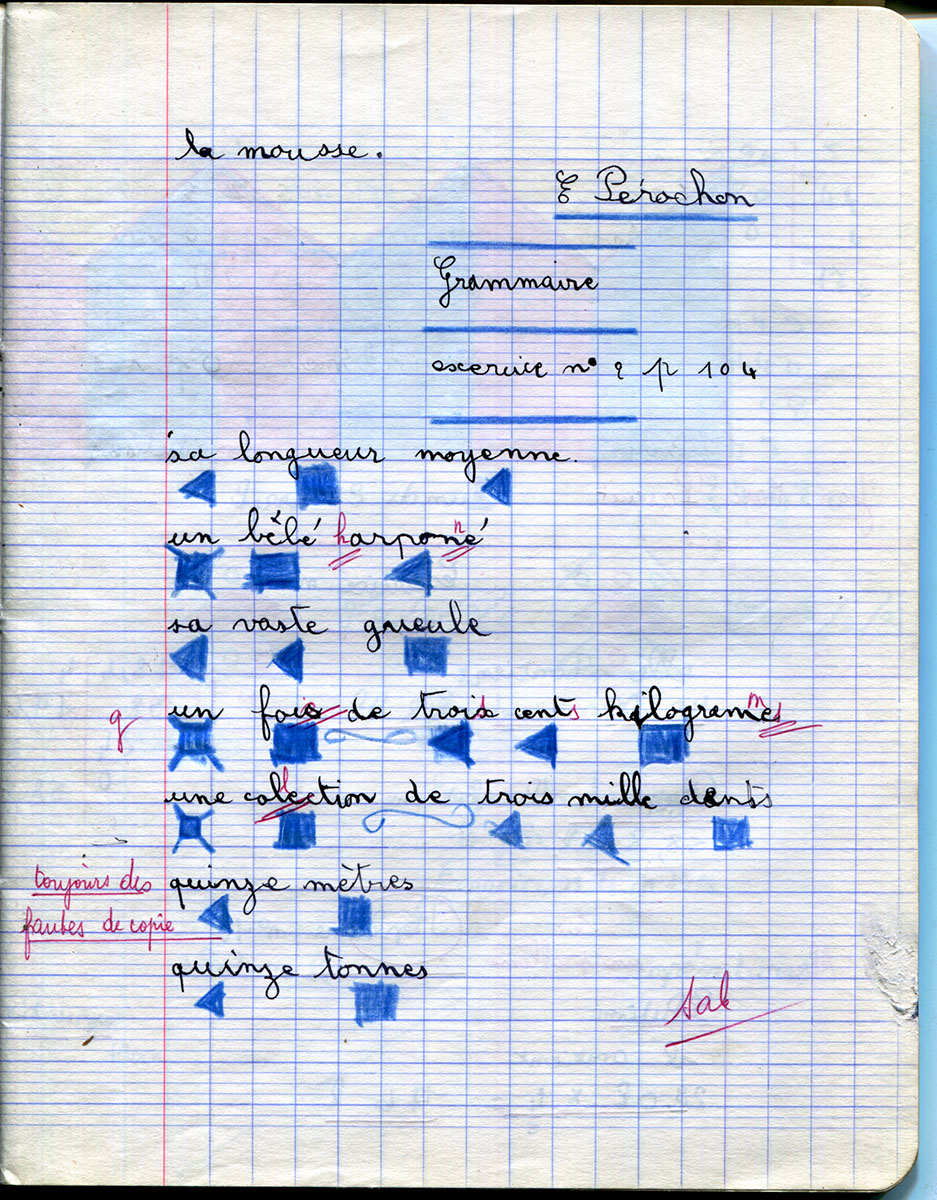 la mousse.
E Pérochon
Grammaire
exercice n° 2 p 104
sa longueur moyenne.
un bébé harponné
sa vaste gueule
g un foie de trois cents kilogrammes
une collection de trois mille dents
tojours des
quinze mètres
fautes de copie
quinze tonnes